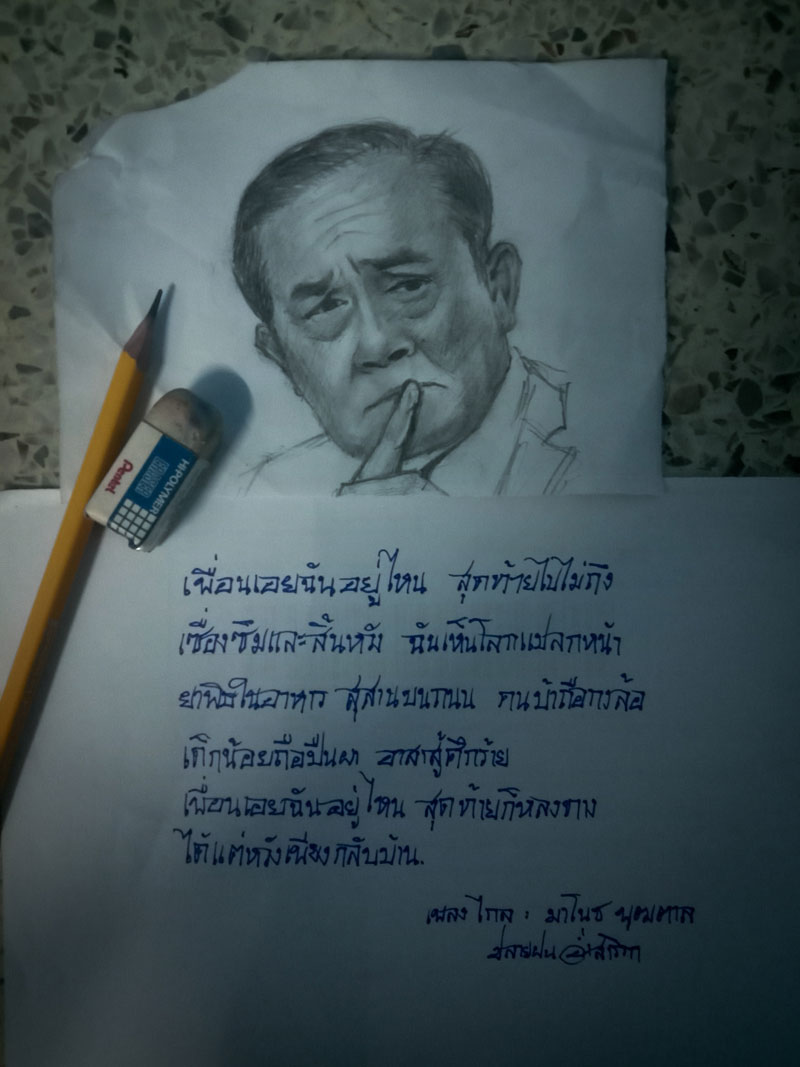 Pentel
HI-POLYMER
เพื่อนเอยฉันอยู่ไหน สุดท้ายไปไม่ถึง
เซื่องซึมและสิ้นหวัง ฉันเห็นโลกแปลกหน้า
ยาพิษในอาหาร สุสานบนถนน คนบ้าถือกรงล้อ
เด็กน้อยถือปืนผา อาสาสู้ศึกร้าย
เพื่อนเอยฉันอยู่ไหน สุดท้ายก็หลงทาง
ได้แต่หวังเพียงกลับบ้าน.
เพลง ไกล : มาโนช พุฒตาล
ปลายฝน